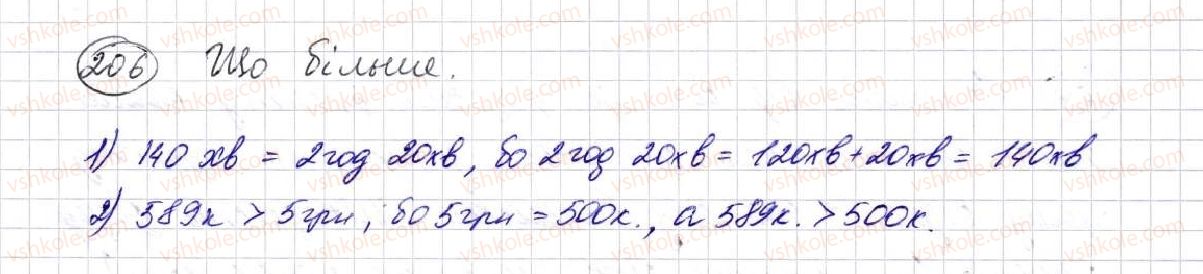 206 Що більше.
1) 140 хв = 2 год 20 хв, бо 2 год 20 хв = 120 хв + 20 хв = 140 хв
2) 589 к > 5 грн, бо 5 грн = 500 к., а 589 к. > 500 к.